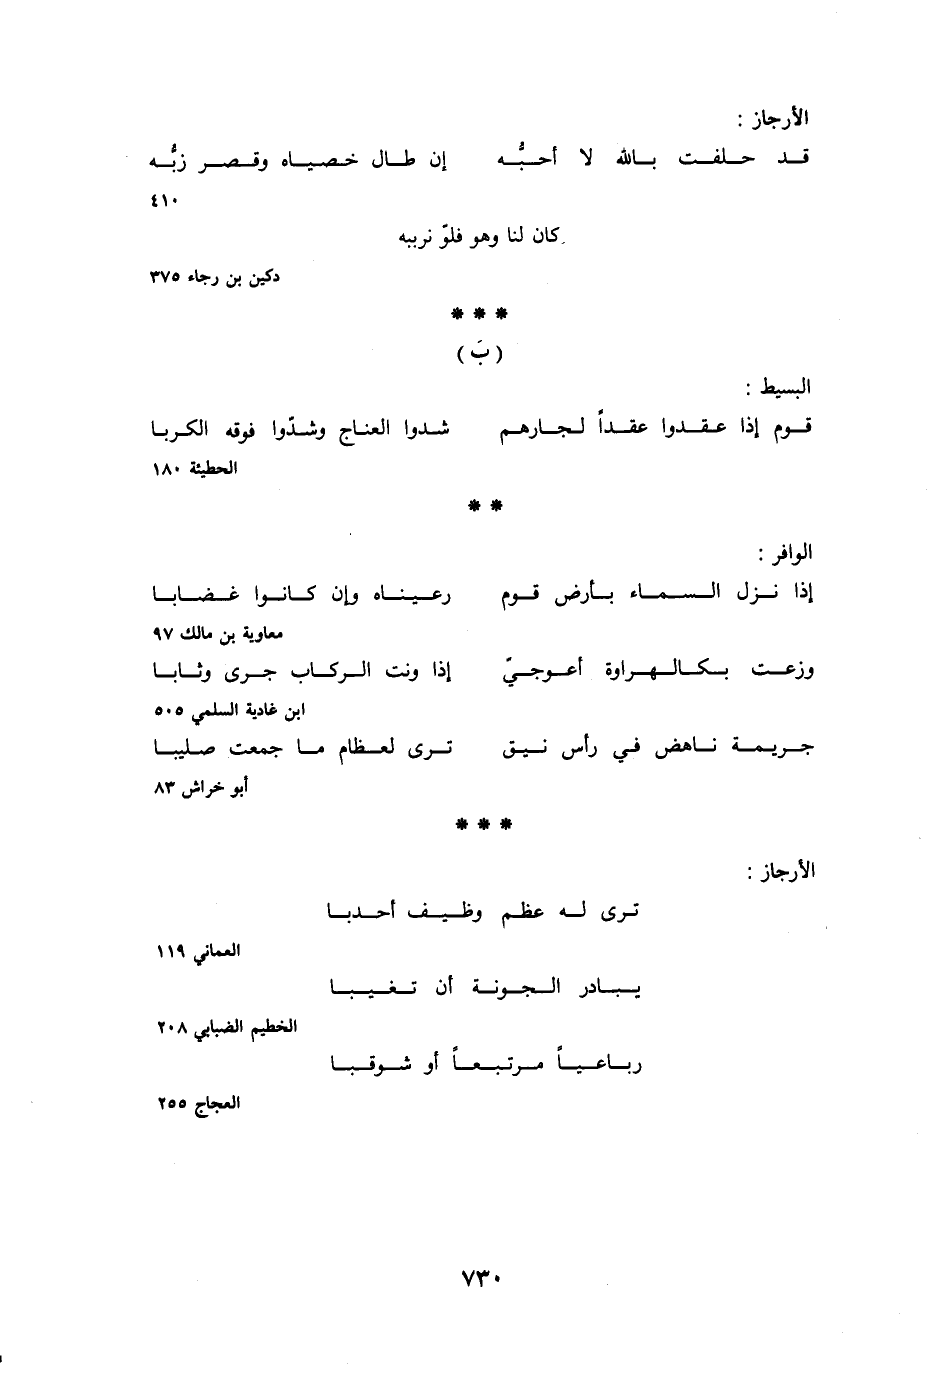 الأرجاز :
قد حلفت بالله لا أحبُّه إن طال خصياه وقصر زبُّه
٤١٠
كان لنا وهو فلوّ نرببه
دكين بن رجاء ٣٧٥
* * *
(بَ)
البسيط :
قوم إذا عقدوا عقداً لجارهم شدوا العناج وشدّوا فوقه الكربا
الحطيئة ١٨٠
* *
الوافر :
إذا نزل السماء بأرض قوم رعيناه وإن كانوا غضابا
معاوية بن مالك ٩٧
وزعت بكالهراوة أعوجيّ إذا ونت الركاب جرى وثابا
ابن غادية السلمي ٥٠٥
جريمة ناهض في رأس نيق ترى لعظام ما جمعت صليبا
أبو خراش ٨٣
* * *
الأرجاز :
ترى له عظم وظيف أحدبا
العماني ١١٩
يبادر الجونة أن تغيبا
الخطيم الضبابي ٢٠٨
رباعياً مرتبعاً أو شوقبا
العجاج ٢٥٥
٧٣٠